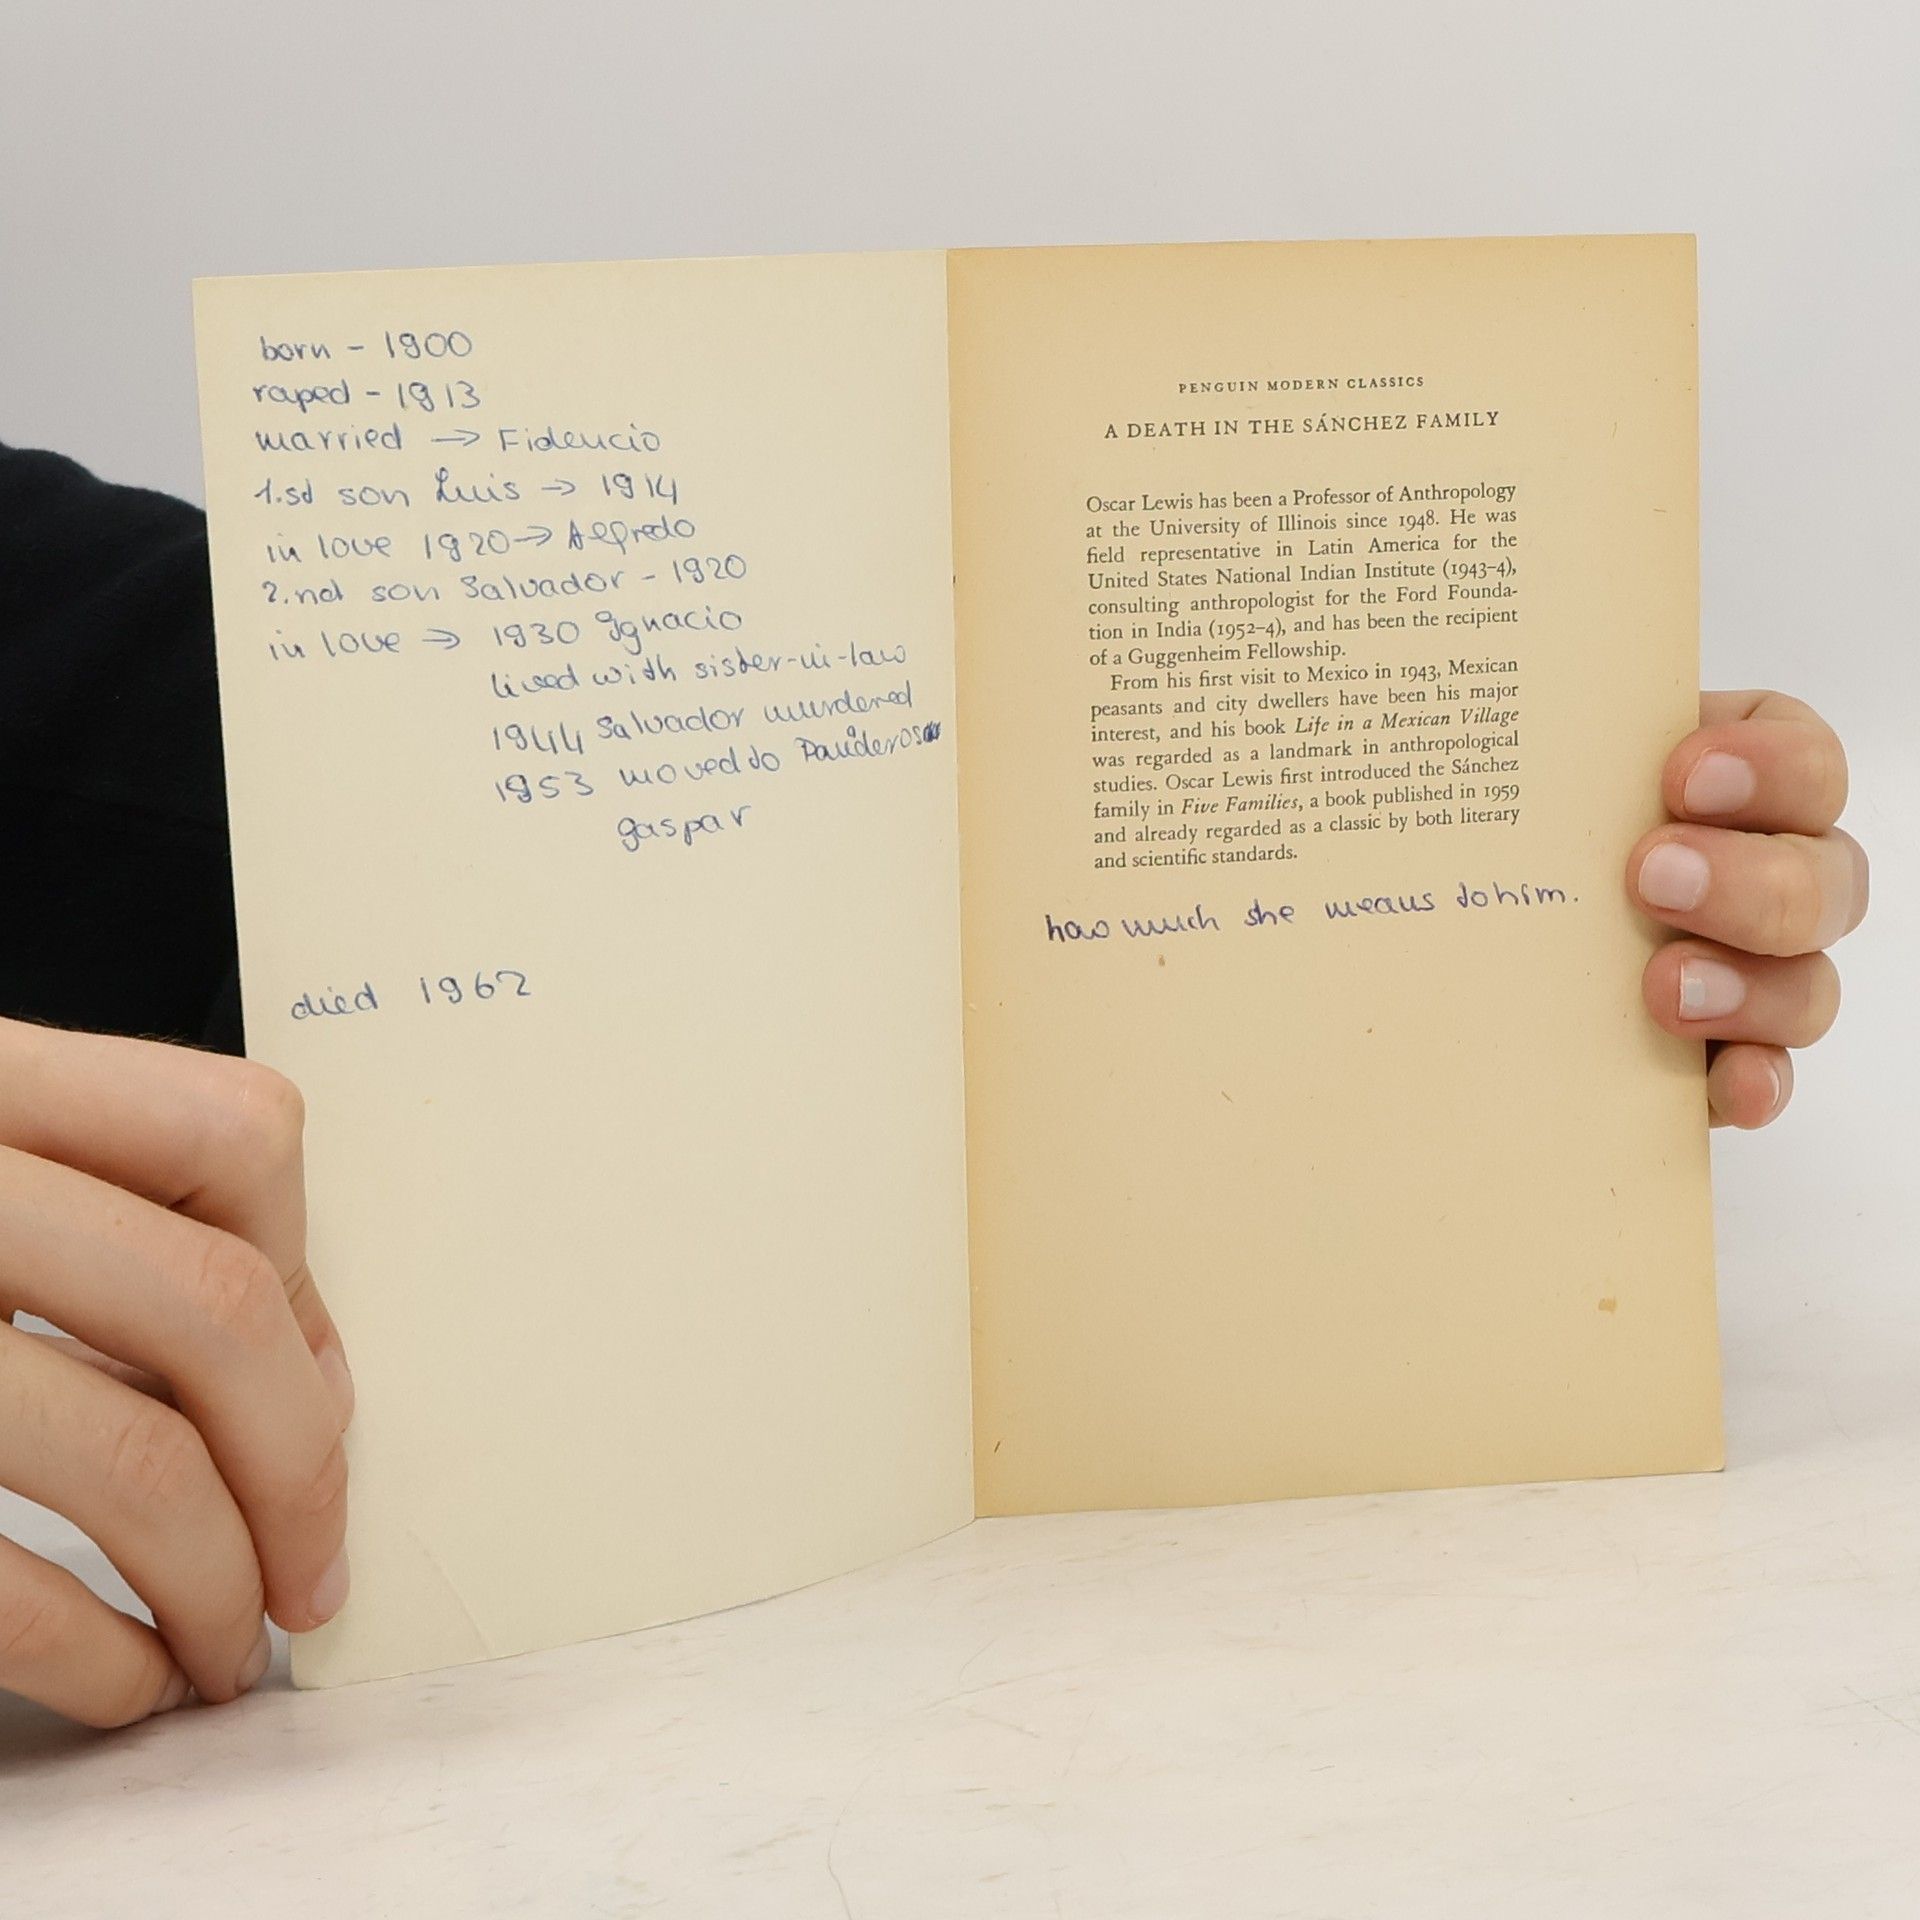 born - 1900
raped - 1913
married → Fidencio
1.st son Luis → 1914
in love 1920 → Alfredo
2.nd son Salvador - 1920
in love → 1930 Ignacio
lived with sister-in-law
1944 Salvador murdered
1953 moved to
gaspar
died 1962
PENGUIN MODERN CLASSICS
A DEATH IN THE SÁNCHEZ FAMILY
Oscar Lewis has been a Professor of Anthropology
at the University of Illinois since 1948. He was
field representative in Latin America for the
United States National Indian Institute (1943–4),
consulting anthropologist for the Ford Founda-
tion in India (1952–4), and has been the recipient
of a Guggenheim Fellowship.
From his first visit to Mexico in 1943, Mexican
peasants and city dwellers have been his major
interest, and his book Life in a Mexican Village
was regarded as a landmark in anthropological
studies. Oscar Lewis first introduced the Sánchez
family in Five Families, a book published in 1959
and already regarded as a classic by both literary
and scientific standards.
how much she means to him.